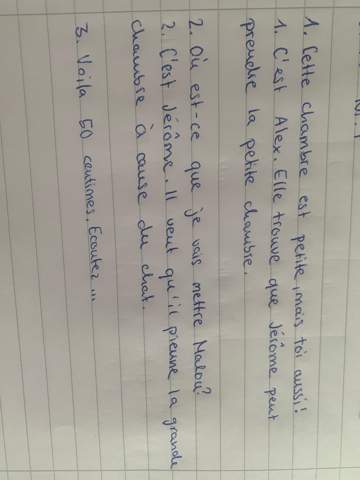 1. Cette chambre est petite, mais toi aussi!
1. C'est Alex. Elle trouve que Jérôme peut
prendre la petite chambre.
2. Où est-ce que je vais mettre Malou?
2. C'est Jérôme. Il veut qu'il prenne la grande
chambre à cause du chat.
3. Voila 50 centimes. Ecoutez...